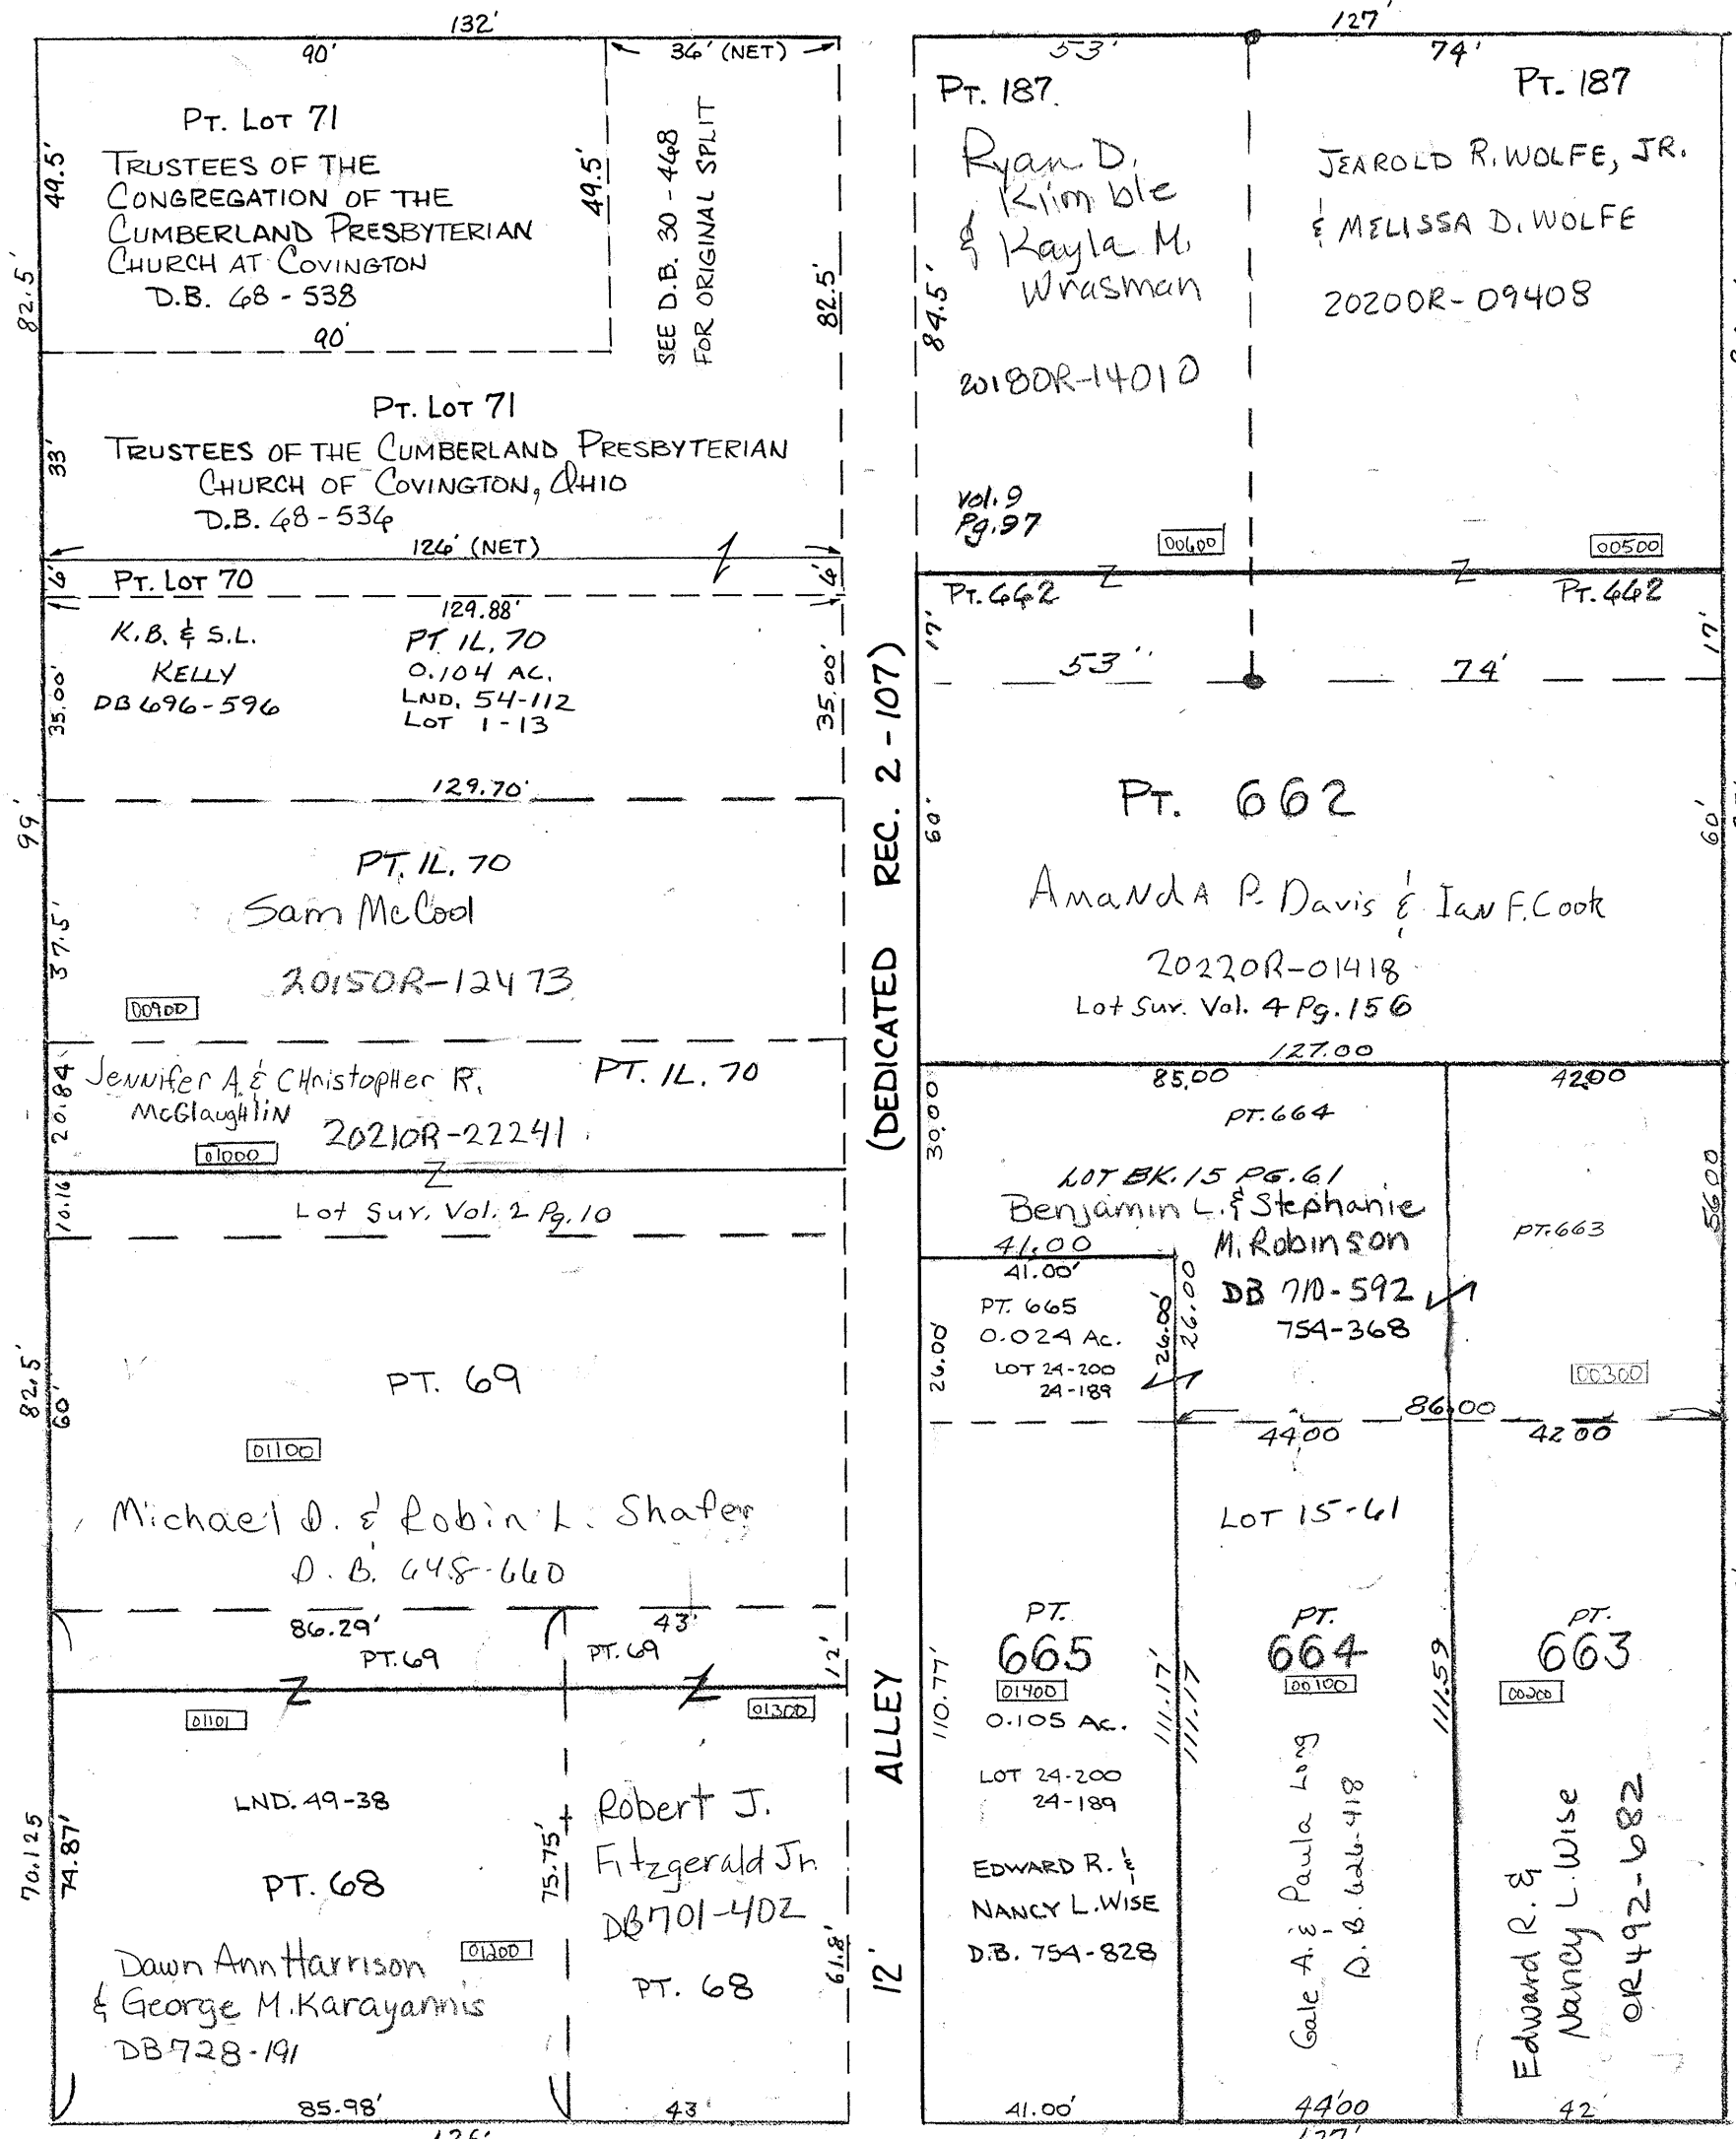 132'
90'
36' (NET)
PT. LOT 71
TRUSTEES OF THE
CONGREGATION OF THE
CUMBERLAND PRESBYTERIAN
CHURCH AT COVINGTON
D.B. 68 - 538
49.5'
49.5'
82.5'
90'
SEE D.B. 30 - 468
FOR ORIGINAL SPLIT
82.5'
PT. LOT 71
TRUSTEES OF THE CUMBERLAND PRESBYTERIAN
CHURCH OF COVINGTON, OHIO
D.B. 68 - 536
33'
126' (NET)
6'
PT. LOT 70
6'
129.88'
K.B. & S.L.
KELLY
DB 696-596
PT IL. 70
0.104 AC.
LND. 54-112
LOT 1-13
35.00'
35.00'
129.70'
99'
PT. IL. 70
Sam McCool
20150R-12473
37.5'
00900
20.84'
Jennifer A. & CHristopHer R.
McGlaugHliN
PT. IL. 70
20210R-22241
01000
10.16'
Lot Sur. Vol. 2 Pg. 10
82.5'
60'
PT. 69
01100
Michael D. & Robin L. Shafer
D. B. 648-660
86.29'
43'
PT. 69
PT. 69
12'
01101
01300
LND. 49-38
PT. 68
70.125
74.87'
75.75'
Dawn Ann Harrison
& George M. Karayannis
DB 728-191
01200
Robert J.
Fitzgerald Jr.
DB701-402
PT. 68
61.8'
85.98'
43'
126'
12' ALLEY (DEDICATED REC. 2 - 107)
127'
53'
74'
PT. 187.
Ryan D.
Kiimble
& Kayla M.
Wrasman
20180R-14010
84.5'
Vol. 9
Pg. 97
00600
PT. 187
JEAROLD R. WOLFE, JR.
& MELISSA D. WOLFE
20200R-09408
00500
PT. 662
PT. 662
17'
17'
53''
74'
PT. 662
60'
60'
AmaNdA P. Davis & IaN F. Cook
20220R-01418
Lot Sur. Vol. 4 Pg. 156
127.00
85.00
42.00
30.00
PT. 664
LOT BK. 15 PG. 61
Benjamin L. & Stephanie
M. Robinson
DB 710-592
754-368
PT. 663
56.00
41.00
41.00'
PT. 665
0.024 AC.
LOT 24-200
24-189
26.00'
26.00'
26.00
00300
86.00
44.00
42.00
LOT 15-61
PT.
665
01400
0.105 AC.
LOT 24-200
24-189
EDWARD R. &
NANCY L. WISE
D.B. 754-828
110.77'
111.17'
111.17
PT.
664
00100
Gale A. & Paula Long
D.B. 626-418
111.59
PT.
663
00200
Edward R. &
Nancy L. Wise
OR492-682
41.00'
44'00
42
127'